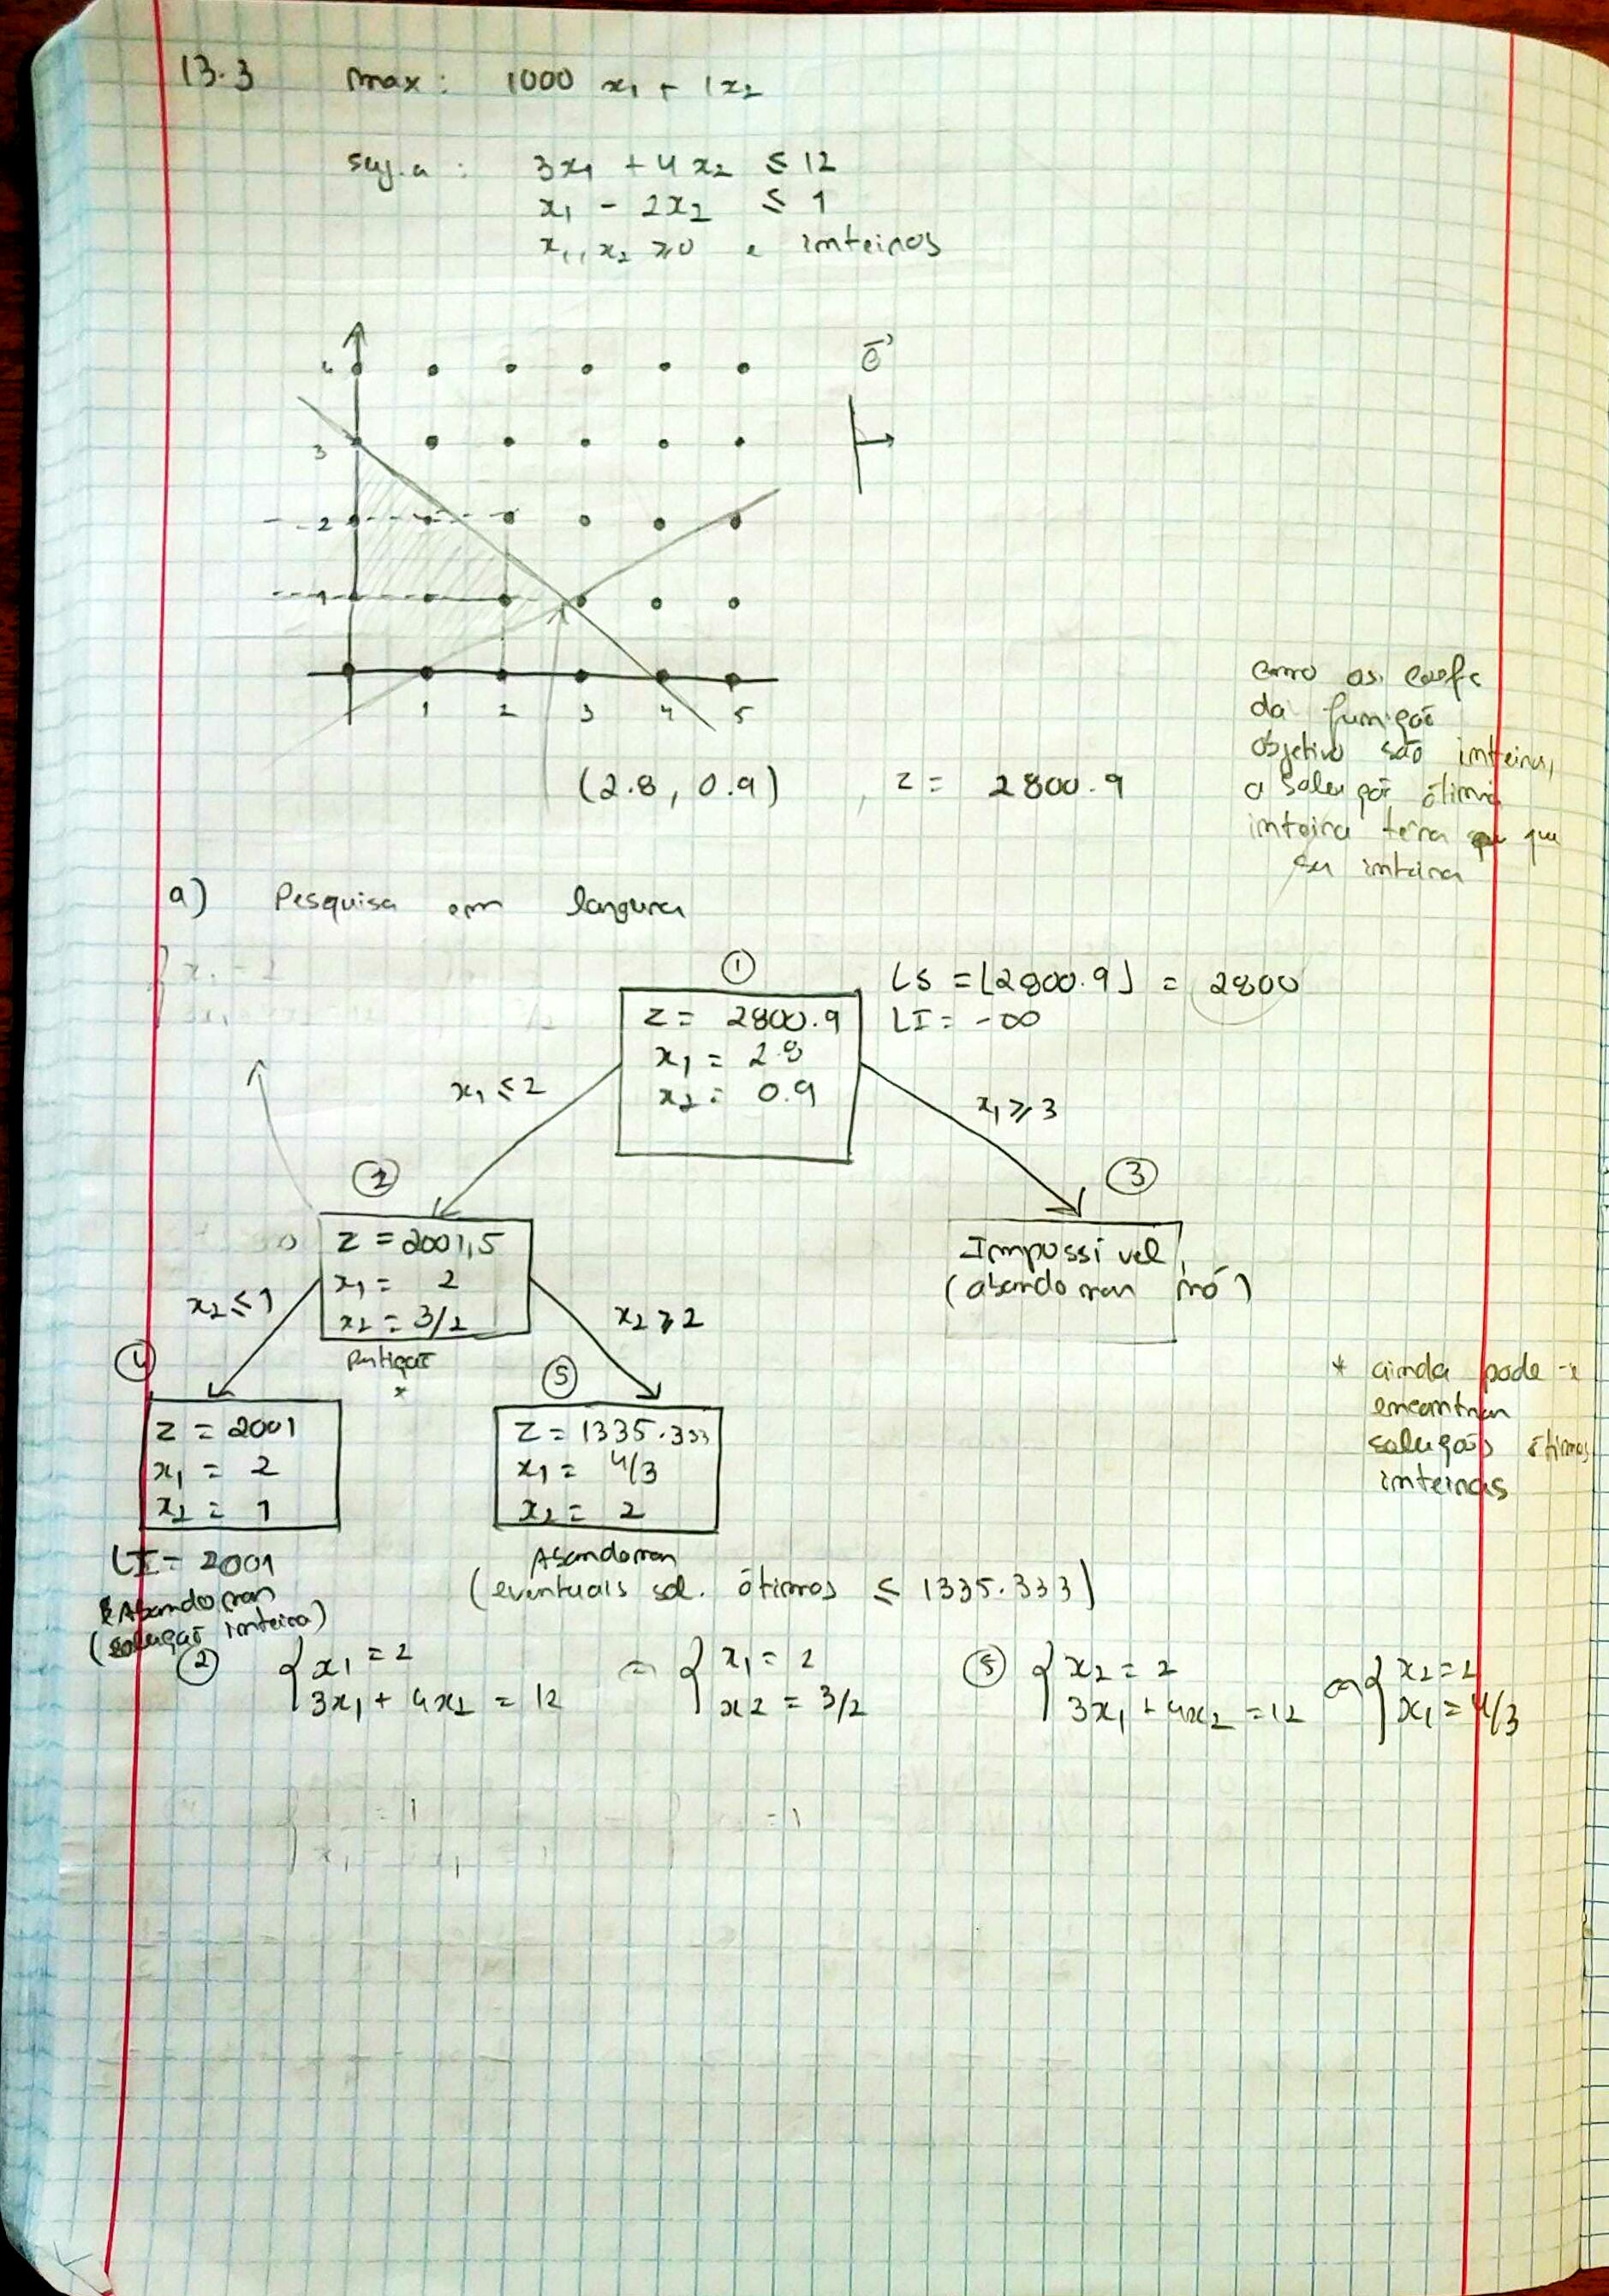 13.3 max: 1000 x₁ + 1x₂
suj. a: 3x₁ + 4x₂ ≤ 12
x₁ - 2x₂ ≤ 1
x₁, x₂ ≥ 0 e inteiros
4
3
2
1
1 2 3 4 5
(2.8, 0.9), z = 2800.9
como os coefs
da função
objetivo são inteiros,
a solução ótima
inteira terá que
ser inteira
a) Pesquisa em largura
①
LS = ⌊2800.9⌋ = 2800
LI = -∞
z = 2800.9
x₁ = 2.8
x₂ = 0.9
x₁ ≤ 2
x₁ ≥ 3
②
z = 2001,5
x₁ = 2
x₂ = 3/2
Partição
*
③
Impossível,
(abandonar nó)
x₂ ≤ 1
x₂ ≥ 2
④
z = 2001
x₁ = 2
x₂ = 1
LI = 2001
Abandonar
(solução inteira)
⑤
z = 1335.333
x₁ = 4/3
x₂ = 2
Abandonar
(eventuais sol. ótimas ≤ 1335.333)
* ainda pode-se
encontrar
soluções ótimas
inteiras
② { x₁ = 2
3x₁ + 4x₂ = 12
{ x₁ = 2
x2 = 3/2
⑤ { x₂ = 2
3x₁ + 4x₂ = 12
{ x₂ = 2
x₁ = 4/3